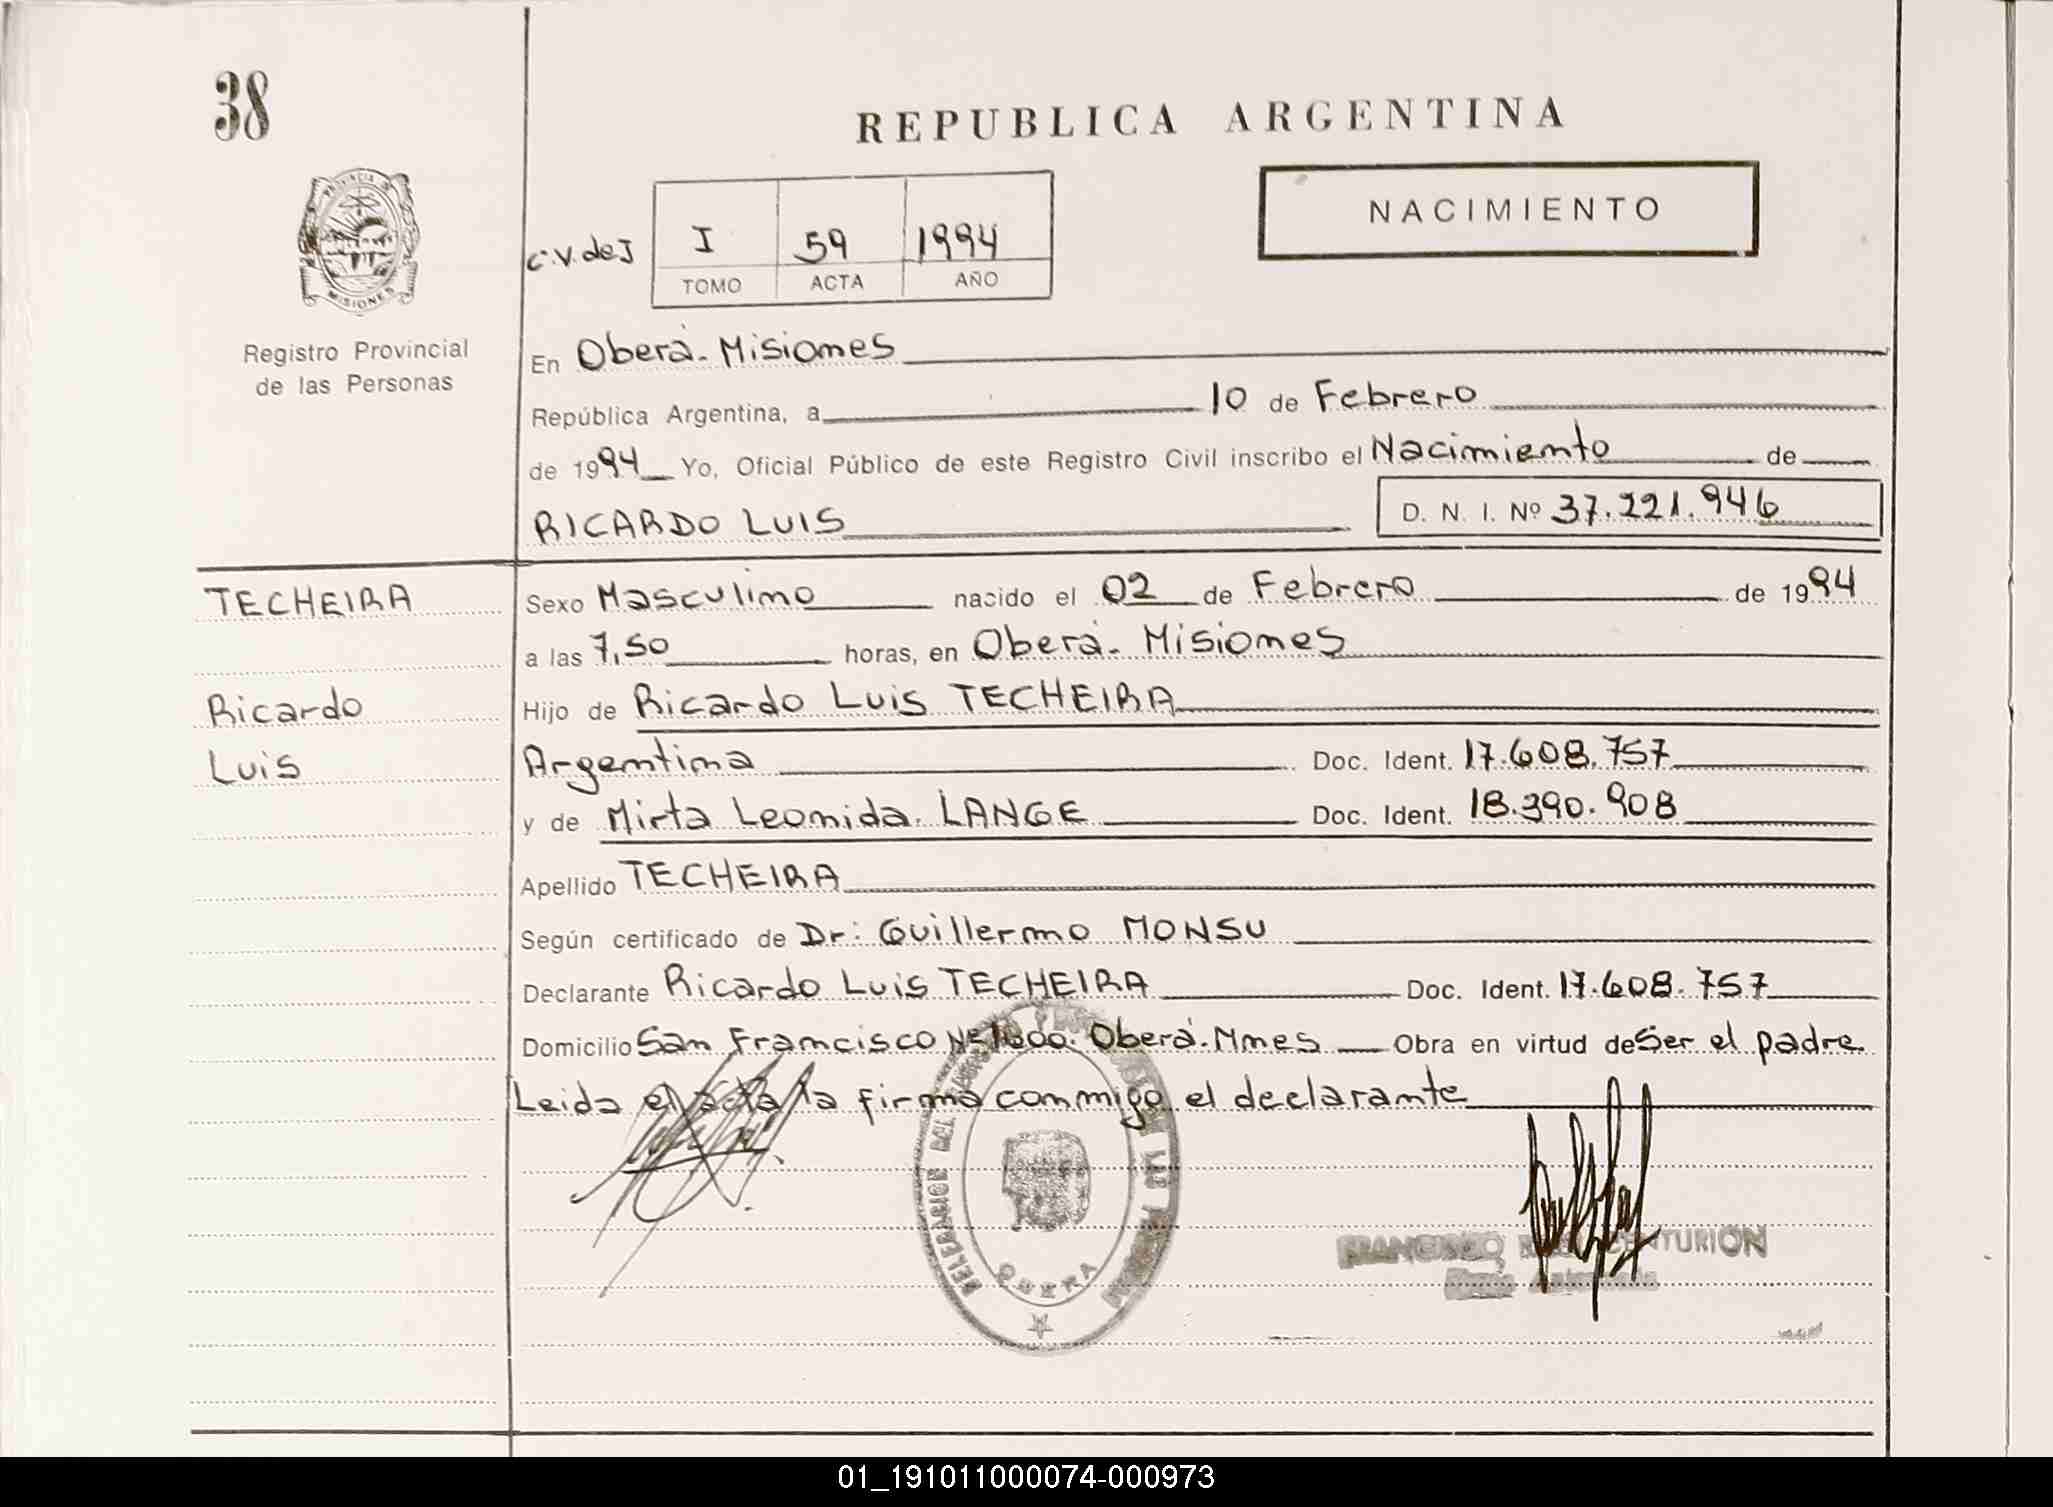 38
REPUBLICA ARGENTINA
NACIMIENTO
C.V. de J
I 59 1994
TOMO ACTA AÑO
PROVINCIA DE MISIONES
Registro Provincial
de las Personas
En Oberá - Misiones
República Argentina, a 10 de Febrero
de 1994 Yo, Oficial Público de este Registro Civil inscribo el Nacimiento de
RICARDO LUIS D. N. I. Nº 37.221.946
TECHEIRA Sexo Masculino nacido el 02 de Febrero de 1994
a las 7,50 horas, en Oberá - Misiones
Ricardo Hijo de Ricardo Luis TECHEIRA
Luis Argentina Doc. Ident. 17.608.757
y de Mirta Leonida LANGE Doc. Ident. 18.390.908
Apellido TECHEIRA
Según certificado de Dr: Guillermo MONSU
Declarante Ricardo Luis TECHEIRA Doc. Ident. 17.608.757
Domicilio San Francisco Nº 1600. Oberá. Mnes Obra en virtud de Ser el padre
Leida el acta la firma conmigo el declarante
OBERA
FRANCISCO CENTURION
01_191011000074-000973